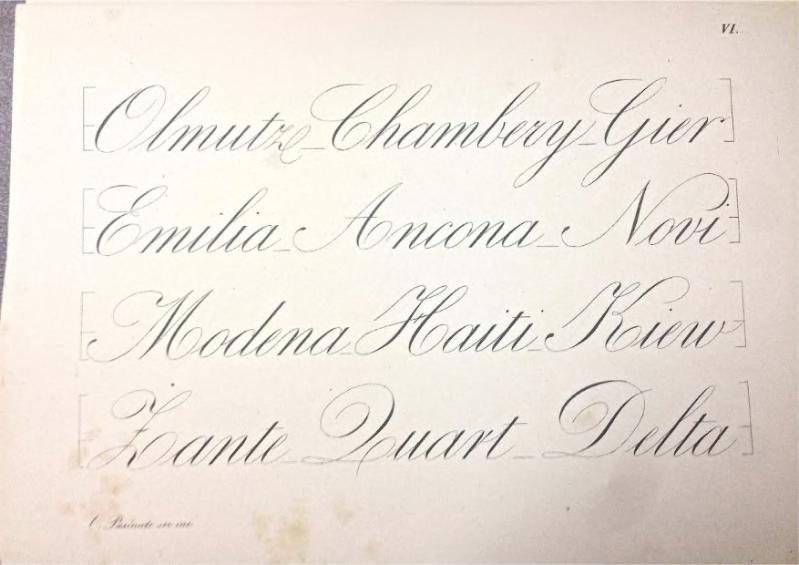 VI.
Olmutz_Chambery_Gier
Emilia_Ancona_Novi
Modena_Haiti_Kiew
Zante_Quart_Delta